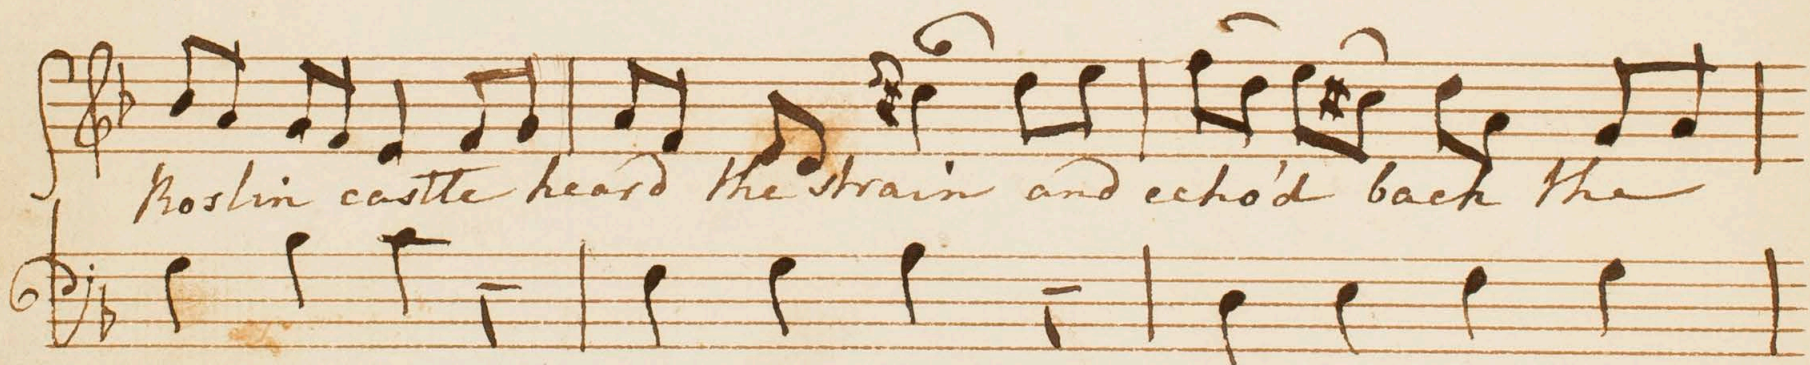 Roslin castle heard the strain and echo'd back the